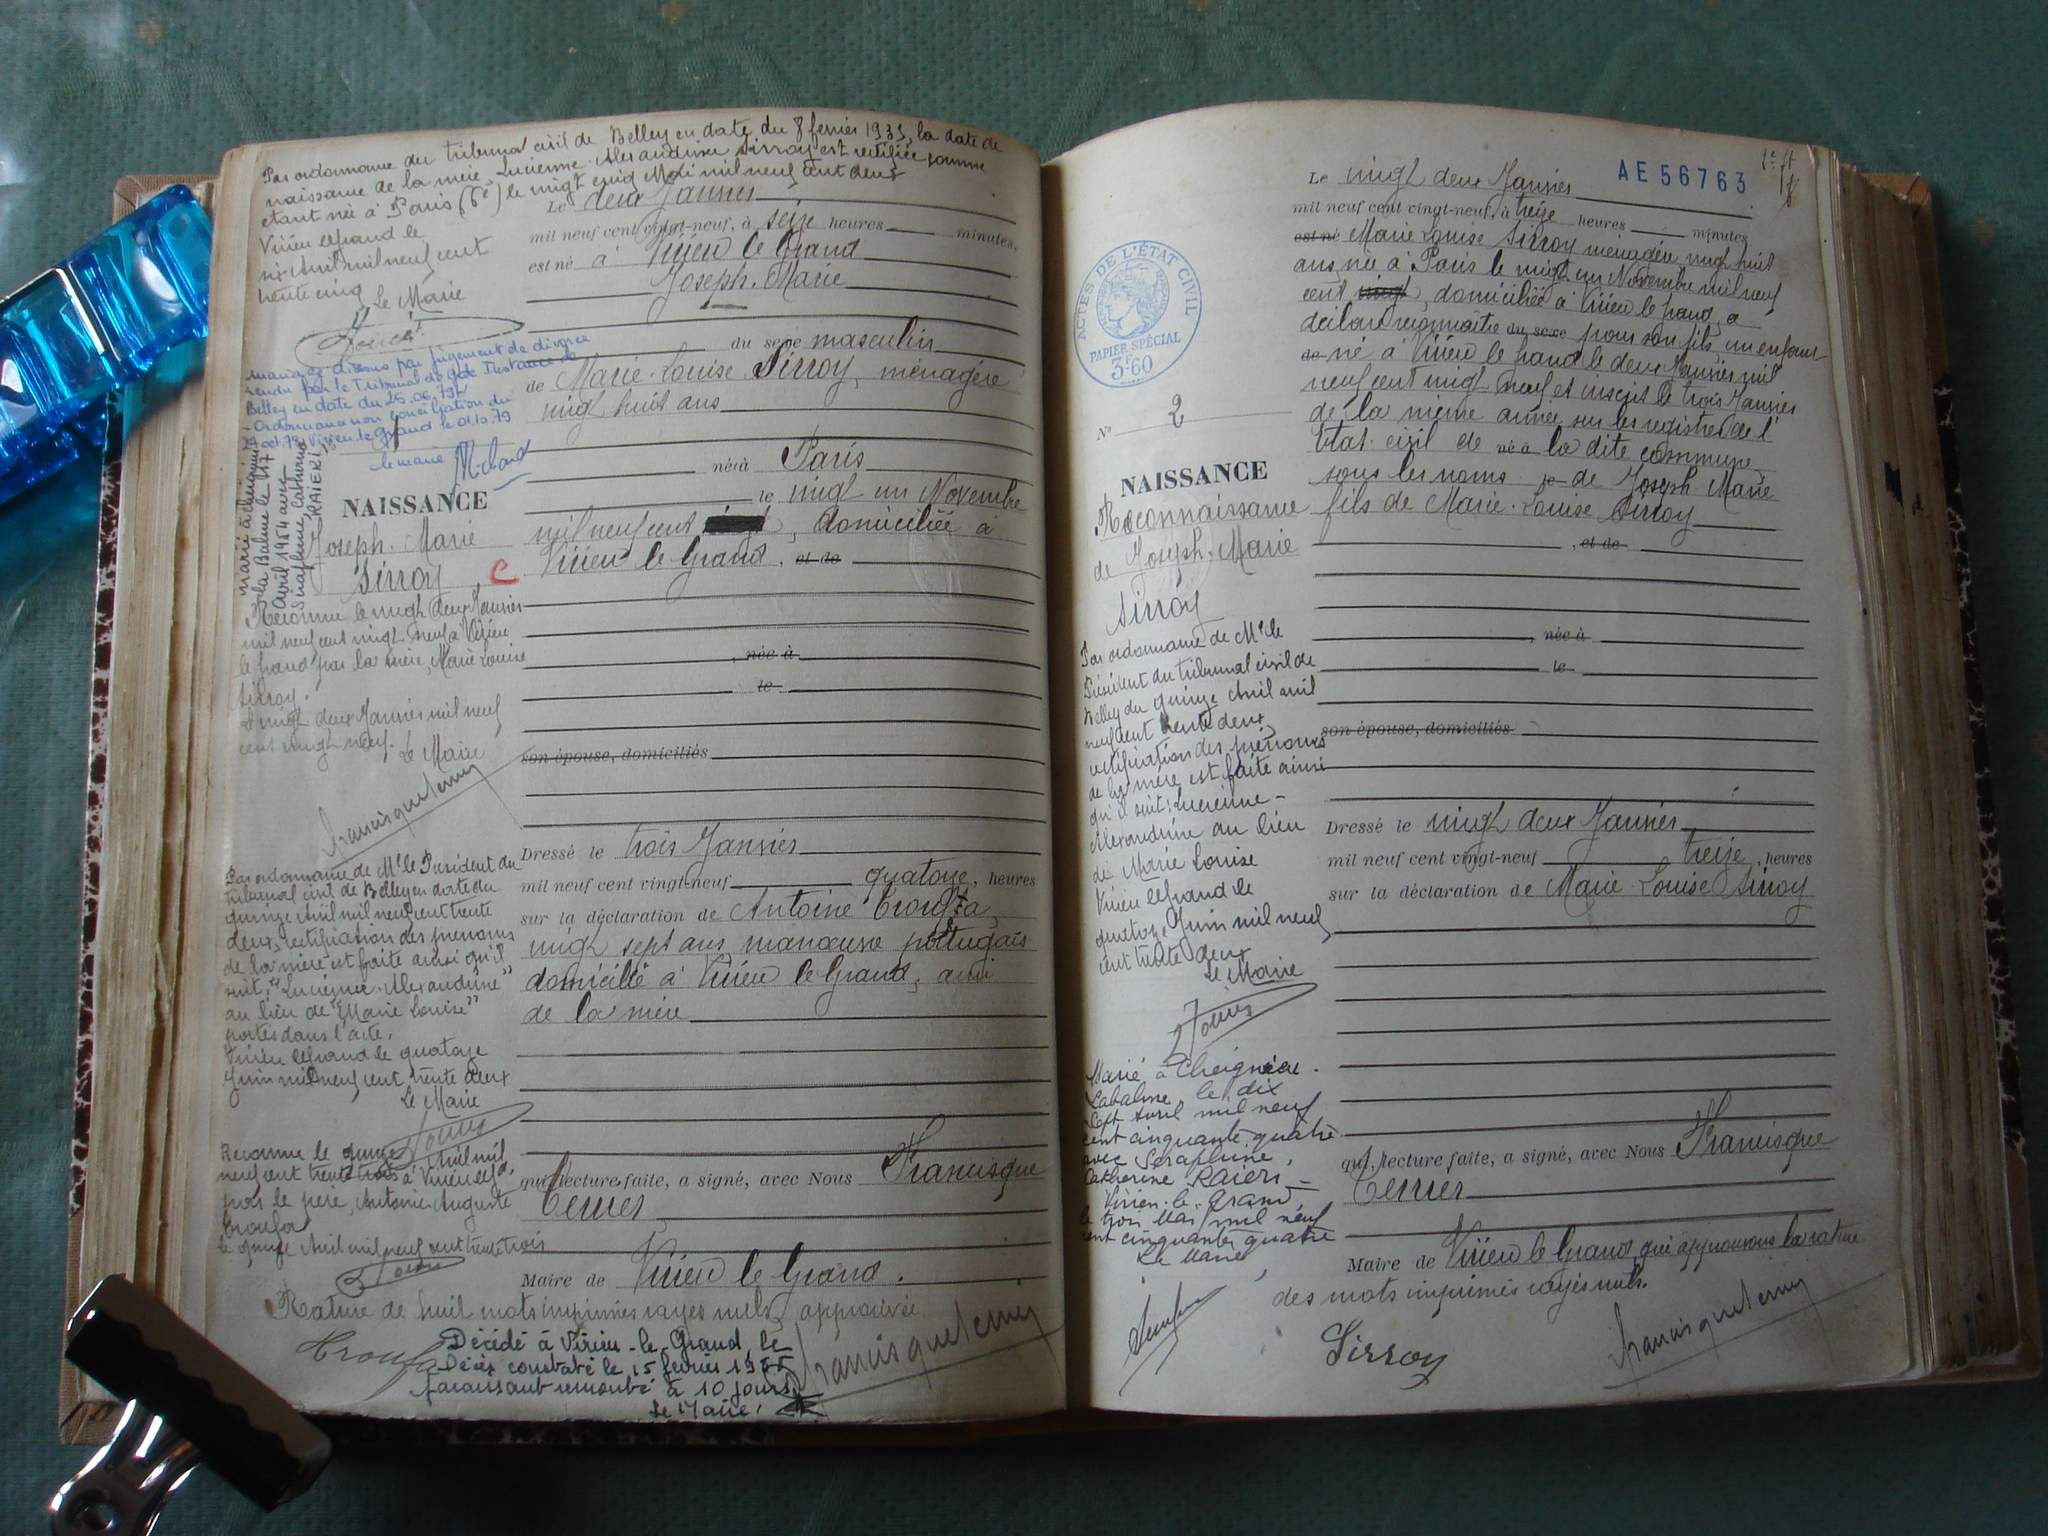 Par ordonnance du tribunal civil de Belley en date du 8 fevrier 1935, la date de
naissance de la mère Lucienne Alexandrine Sirroy est rectifiée comme
étant née à Paris (6e) le vingt cinq Mai mil neuf cent deux
Virieu le grand le
six Avril mil neuf cent
trente cinq
Le Maire
mariage dissous par jugement de divorce
rendu par le Tribunal de Gde Instance de
Belley en date du 25.06.79
- Ordonnance non conciliation du
oct. 78. Virieu le Grand le 01.10.79
le maire
Michaud
NAISSANCE
Joseph. Marie
Sirroy
C
avril 1954 avec
Séraphine Catherine
RAIERI
Reconnu le vingt deux Janvier
mil neuf cent vingt neuf à Virieu
le grand par la mère, Marie Louise
Sirroy.
Le vingt deux Janvier mil neuf
cent vingt neuf. Le Maire
Par ordonnance de Mr le Président du
tribunal civil de Belley en date du
quinze Avril mil neuf cent trente
deux, rectification des prénoms
de la mère est faite ainsi qu'il
suit, "Lucienne. Alexandrine"
au lieu de "Marie Louise"
portés dans l'acte.
Virieu le grand le quatorze
Juin mil neuf cent trente deux
Le Maire
Reconnu le quinze Avril mil
neuf cent trente trois à Virieu le gd
par le père, Antoine Auguste
Troufa
le quinze Avril mil neuf cent trente trois
Le deux Janvier
mil neuf cent vingt-neuf, à seize heures minutes,
est né à Virieu le Grand
Joseph. Marie
du sexe masculin
de Marie. Louise Sirroy, ménagère
vingt huit ans
née à Paris
le vingt un Novembre
mil neuf cent, domiciliée à
Virieu le Grand. et de
, née à
le
son épouse, domiciliés
Dressé le trois Janvier
mil neuf cent vingt-neuf quatorze, heures
sur la déclaration de Antoine Troufa,
vingt sept ans, manœuvre portugais
domicilié à Virieu le Grand, ami
de la mère
qui, lecture faite, a signé, avec Nous Francisque
Terrier,
Maire de Virieu le Grand.
Rature de huit mots imprimés rayés nuls, approuvée
Troufa
Francisque Terrier
Décédé à Virieu-le-Grand, le
Décès constaté le 15 février
paraissant remonter à 10 jours
Le Maire.
AE 56763
ACTES DE L'ÉTAT CIVIL
PAPIER SPÉCIAL
3F60
No 2
NAISSANCE
Reconnaissance
de Joseph. Marie
Sirroy
Par ordonnance de Mr le
Président du tribunal civil de
Belley du quinze Avril mil
neuf cent trente deux,
rectification des prénoms
de la mère est faite ainsi
qu'il suit: Lucienne -
Alexandrine au lieu
de Marie Louise
Virieu le grand le
quatorze Juin mil neuf
cent trente deux
Le Maire
Marié à Cheignieu.
Labalme le dix
sept Avril mil neuf
cent cinquante quatre
avec Séraphine,
Catherine Raieri -
Virieu-le-Grand
le trois Mai mil neuf
cent cinquante quatre
Le Maire
Le vingt deux Janvier
mil neuf cent vingt-neuf, à treize heures minutes
est né Marie Louise Sirroy ménagère, vingt huit
ans, née à Paris le vingt un Novembre mil neuf
cent, domiciliée à Virieu le grand, a
déclaré reconnaître du sexe pour son fils, un enfant
de né à Virieu le grand le deux Janvier mil
neuf cent vingt neuf et inscrit le trois Janvier
de la même année sur les registres de l'
Etat. civil de née à la dite commune
sous les noms le de Joseph. Marie
fils de Marie. Louise Sirroy
, et de
, née à
le
son épouse, domiciliés
Dressé le vingt deux Janvier
mil neuf cent vingt-neuf treize, heures
sur la déclaration de Marie-Louise Sirroy
qui, lecture faite, a signé, avec Nous Francisque
Terrier
Maire de Virieu le Grand, qui approuvons la rature
des mots imprimés rayés nuls.
Sirroy
Francisque Terrier